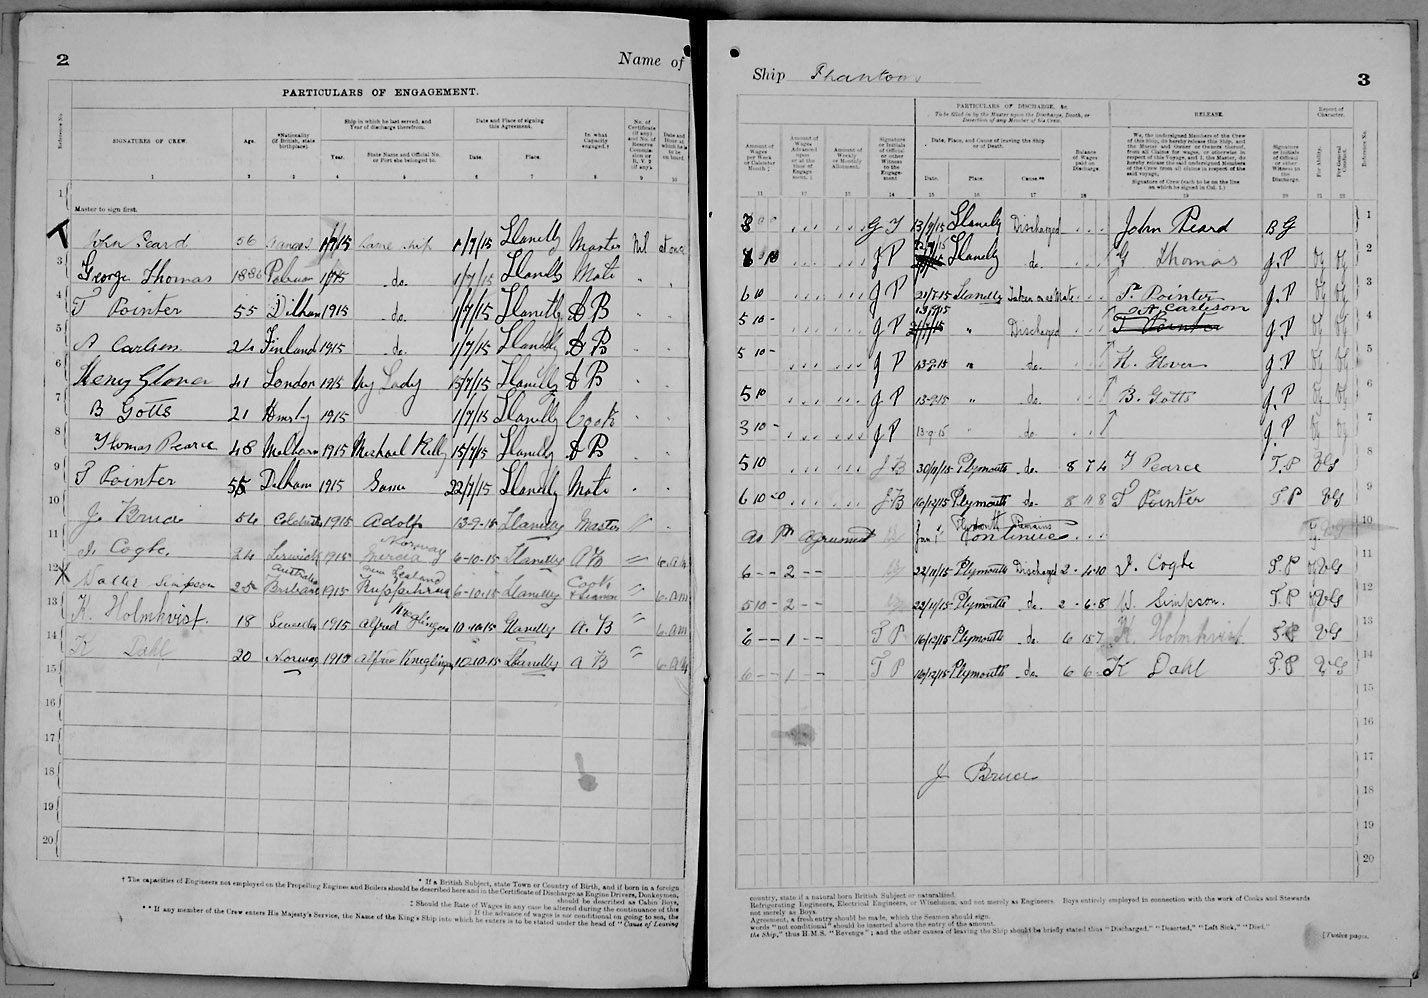 2
Name of
PARTICULARS OF ENGAGEMENT.
Reference No.
SIGNATURES OF CREW.
Age.
*Nationality (if British, state birthplace).
Ship in which he last served, and Year of discharge therefrom.
Year.
State Name and Official No. or Port she belonged to.
Date and Place of signing this Agreement.
Date.
Place.
In what Capacity engaged.†
No. of Certificate (if any) and No. of Reserve Commission or R. V. 2 (if any).
Date and Hour at which he is to be on board.
1 2 3 4 5 6 7 8 9 10
1
Master to sign first.
John Peard 56 1/7/15 Same ship 1/7/15 Llanelly Master Nil at once
3 George Thomas 1886 1/7/15 do. 1/7/15 Llanelly Mate
4 T Pointer 55 Dilham 1915 do. 1/7/15 Llanelly AB
5 A Carlsen 24 Finland 1915 do. 1/7/15 Llanelly AB
6 Henry Glover 41 London 1915 My Lady 15/7/15 Llanelly AB
7 B Gotts 21 1915 1/7/15 Llanelly Cook
8 Thomas Pearce 48 1915 Michael Kelly 15/7/15 Llanelly AB
9 T Pointer 55 Dilham 1915 Same 22/7/15 Llanelly Mate
10 J. Bruce 54 1915 Adolf 13-9-15 Llanelly Master
11 J. Cogle 24 Lerwick 1915 Norway Mercia 6-10-15 Llanelly AB 6. AM
12 Walter Simpson 25 Australia Brisbane 1915 New Zealand 6-10-15 Llanelly Cook & Seaman 6. am
13 K. Holmkvist. 18 Sweden 1915 Alfred 10-10-15 Llanelly A. B 6. am
14 K Dahl 20 Norway 1915 Alfred 10-10-15 Llanelly A B 6. AM
15
16
17
18
19
20
* If a British Subject, state Town or Country of Birth, and if born in a foreign
† The capacities of Engineers not employed on the Propelling Engines and Boilers should be described here and in the Certificate of Discharge as Engine Drivers, Donkeymen,
should be described as Cabin Boys,
‡ Should the Rate of Wages in any case be altered during the continuance of this
‖ If the advance of wages is not conditional on going to sea, the
** If any member of the Crew enters His Majesty's Service, the Name of the King's Ship into which he enters is to be stated under the head of "Cause of Leaving
Ship Phantom
3
Amount of Wages per Week or Calendar Month ‡
Amount of Wages Advanced upon or at the time of Engagement. ‖
Amount of Weekly or Monthly Allotment.
Signature or Initials of Official or other Witness to the Engagement
PARTICULARS OF DISCHARGE, &c.
To be filled in by the Master upon the Discharge, Death, or Desertion of any Member of his Crew.
Date, Place, and Cause of leaving the Ship or of Death.
Date.
Place.
Cause.**
Balance of Wages paid on Discharge.
RELEASE.
We, the undersigned Members of the Crew of this Ship, do hereby release this Ship, and the Master and Owner or Owners thereof, from all Claims for wages, or otherwise in respect of this Voyage, and I, the Master, do hereby release the said undersigned Members of the Crew from all claims in respect of the said voyage.
Signature of Crew (each to be on the line on which he signed in Col. 1.)
Signature or Initials of Official or other Witness to the Discharge.
Report of Character.
For Ability.
For General Conduct.
Reference No.
11 12 13 14 15 16 17 18 19 20 21 22
13/9/15 Llanelly Discharged John Peard B G 1
J P Llanelly do. G Thomas J. P VG VG 2
6 10 J P 21/7/15 Llanelly Taken on as Mate T. Pointer J. P VG VG 3
5 10 - J P 13/9/15 " Discharged A Carlson T Pointer J P VG VG 4
5 10 - J P 13-9-15 " do. H. Glover J. P VG VG 5
5 10 J P 13-9-15 " do. B. Gotts J. P VG VG 6
3 10 - J P 13-9-15 " do. J. P VG VG 7
5 10 J B 30/11/15 Plymouth do. 8 7 4 T Pearce T. P VG 8
6 10 J B 16/12/15 Plymouth do 8 11 8 T Pointer T. P VG 9
as Pr agreement Jan 1st Plymouth Remains Continues 10
6 - - 2 - - 22/11/15 Plymouth Discharged 2 - 4 - 10 J. Cogle T. P VG 11
5 10 - 2 - - 22/11/15 Plymouth do. 2 - 6 - 8 W. Simpson. T. P VG 12
6 - - 1 - - T P 16/12/15 Plymouth do. 6 15 7 K. Holmkvist T. P VG 13
6 - - 1 - - T P 16/12/15 Plymouth do. 6 6 - K Dahl T. P VG 14
15
16
J Bruce 17
18
19
20
country, state if a natural born British Subject or naturalized.
Refrigerating Engineers, Electrical Engineers, or Winchmen, and not merely as Engineers. Boys entirely employed in connection with the work of Cooks and Stewards
not merely as Boys.
Agreement, a fresh entry should be made, which the Seamen should sign.
words "not conditional" should be inserted above the entry of the amount.
the Ship," thus H.M.S. "Revenge"; and the other causes of leaving the Ship should be briefly stated thus "Discharged," "Deserted," "Left Sick," "Died."
[Twelve pages.